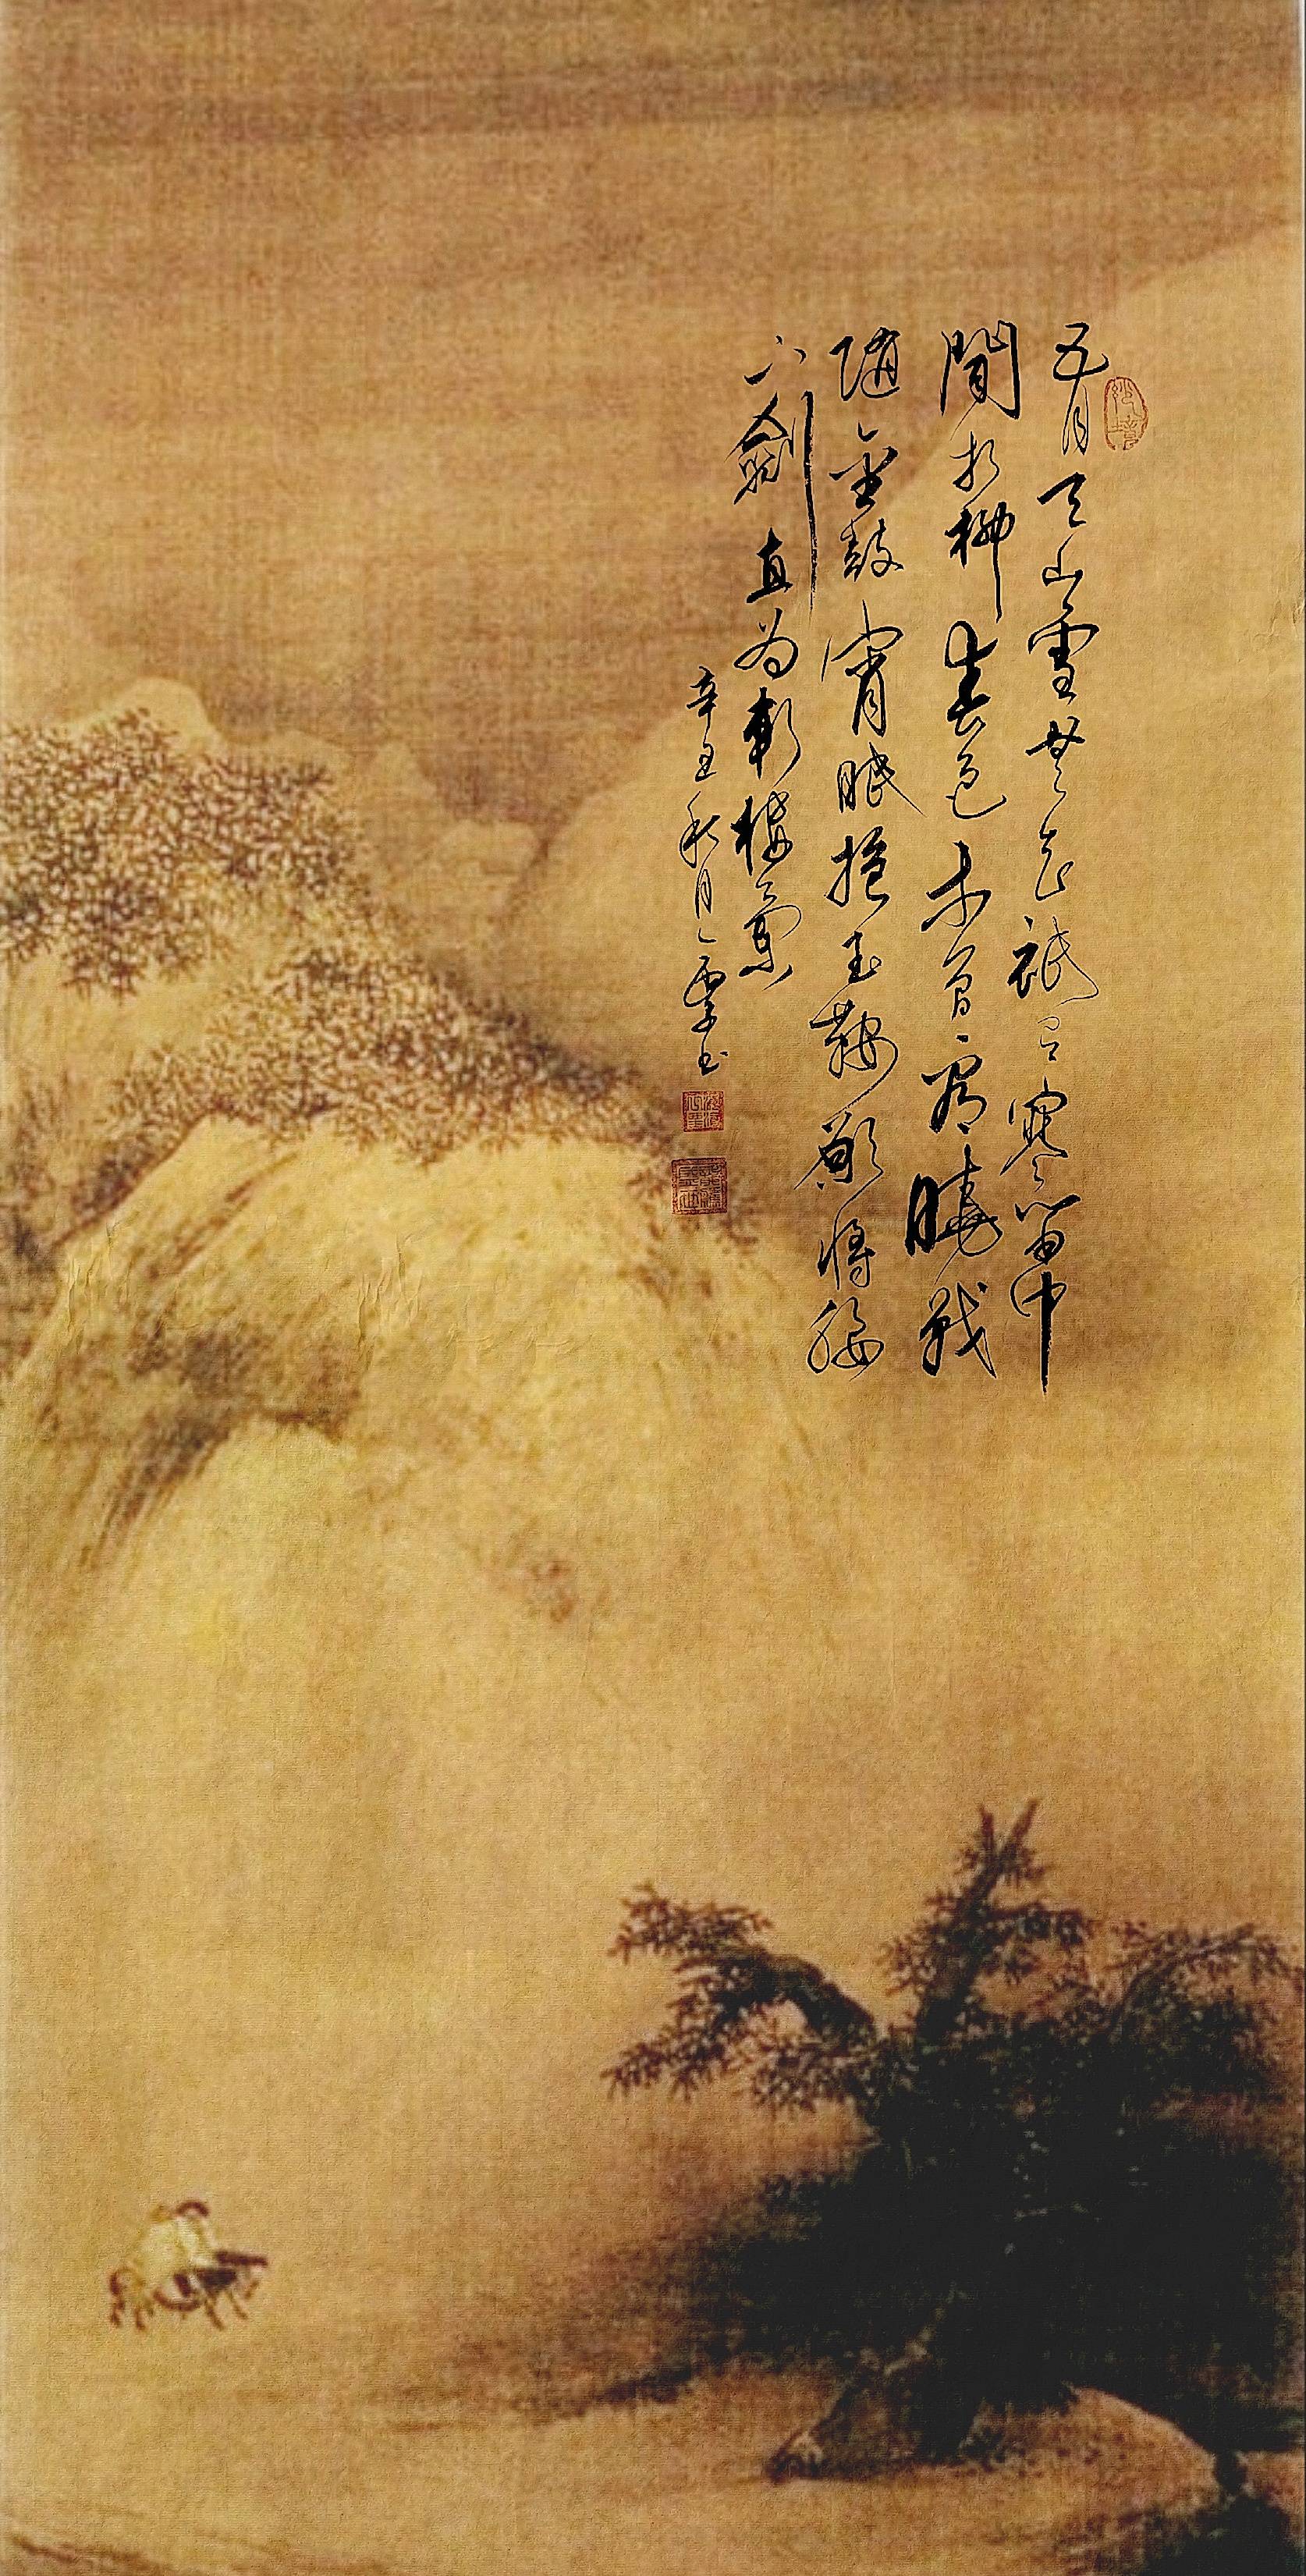 五月天山雪無花祗有寒笛中
聞折柳春色未曾看曉戰
隨金鼓宵眠抱玉鞍願將腰
下劍直為斬樓蘭
辛丑秋月書